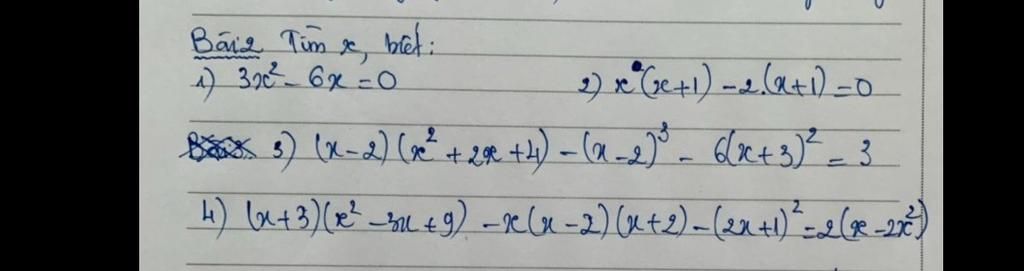 Bài 2 Tìm x, biết:
1) 3x² - 6x = 0 2) x(x+1) - 2.(x+1) = 0
3) (x-2)(x² + 2x + 4) - (x-2)³ - 6(x+3)² = 3
4) (x+3)(x² - 3x + 9) - x(x-2)(x+2) - (2x+1)² = 2(x - 2x²)